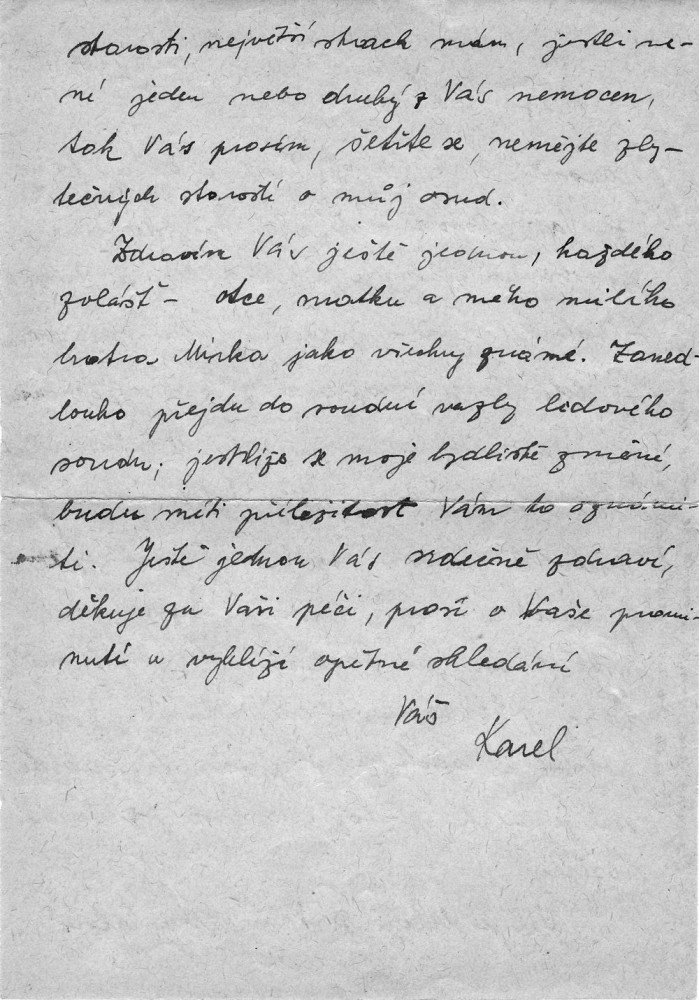 starosti, největší strach mám, jestli ne-
ní jeden nebo druhý z Vás nemocen,
tak Vás prosím, šetřte se, nemějte zby-
tečných starostí o můj osud.
Zdravím Vás ještě jednou, každého
zvlášť - otce, matku a mého milého
bratra Mirka jako všechny známé. Zaned-
louho přejdu do soudní vazby lidového
soudu; jestliže se moje bydliště změní,
budu míti příležitost Vám to oznámi-
ti. Ještě jednou Vás srdečně zdraví,
děkuje za Vaši péči, prosí o Vaše promi-
nutí a vyhlíží opětné shledání
Váš
Karel